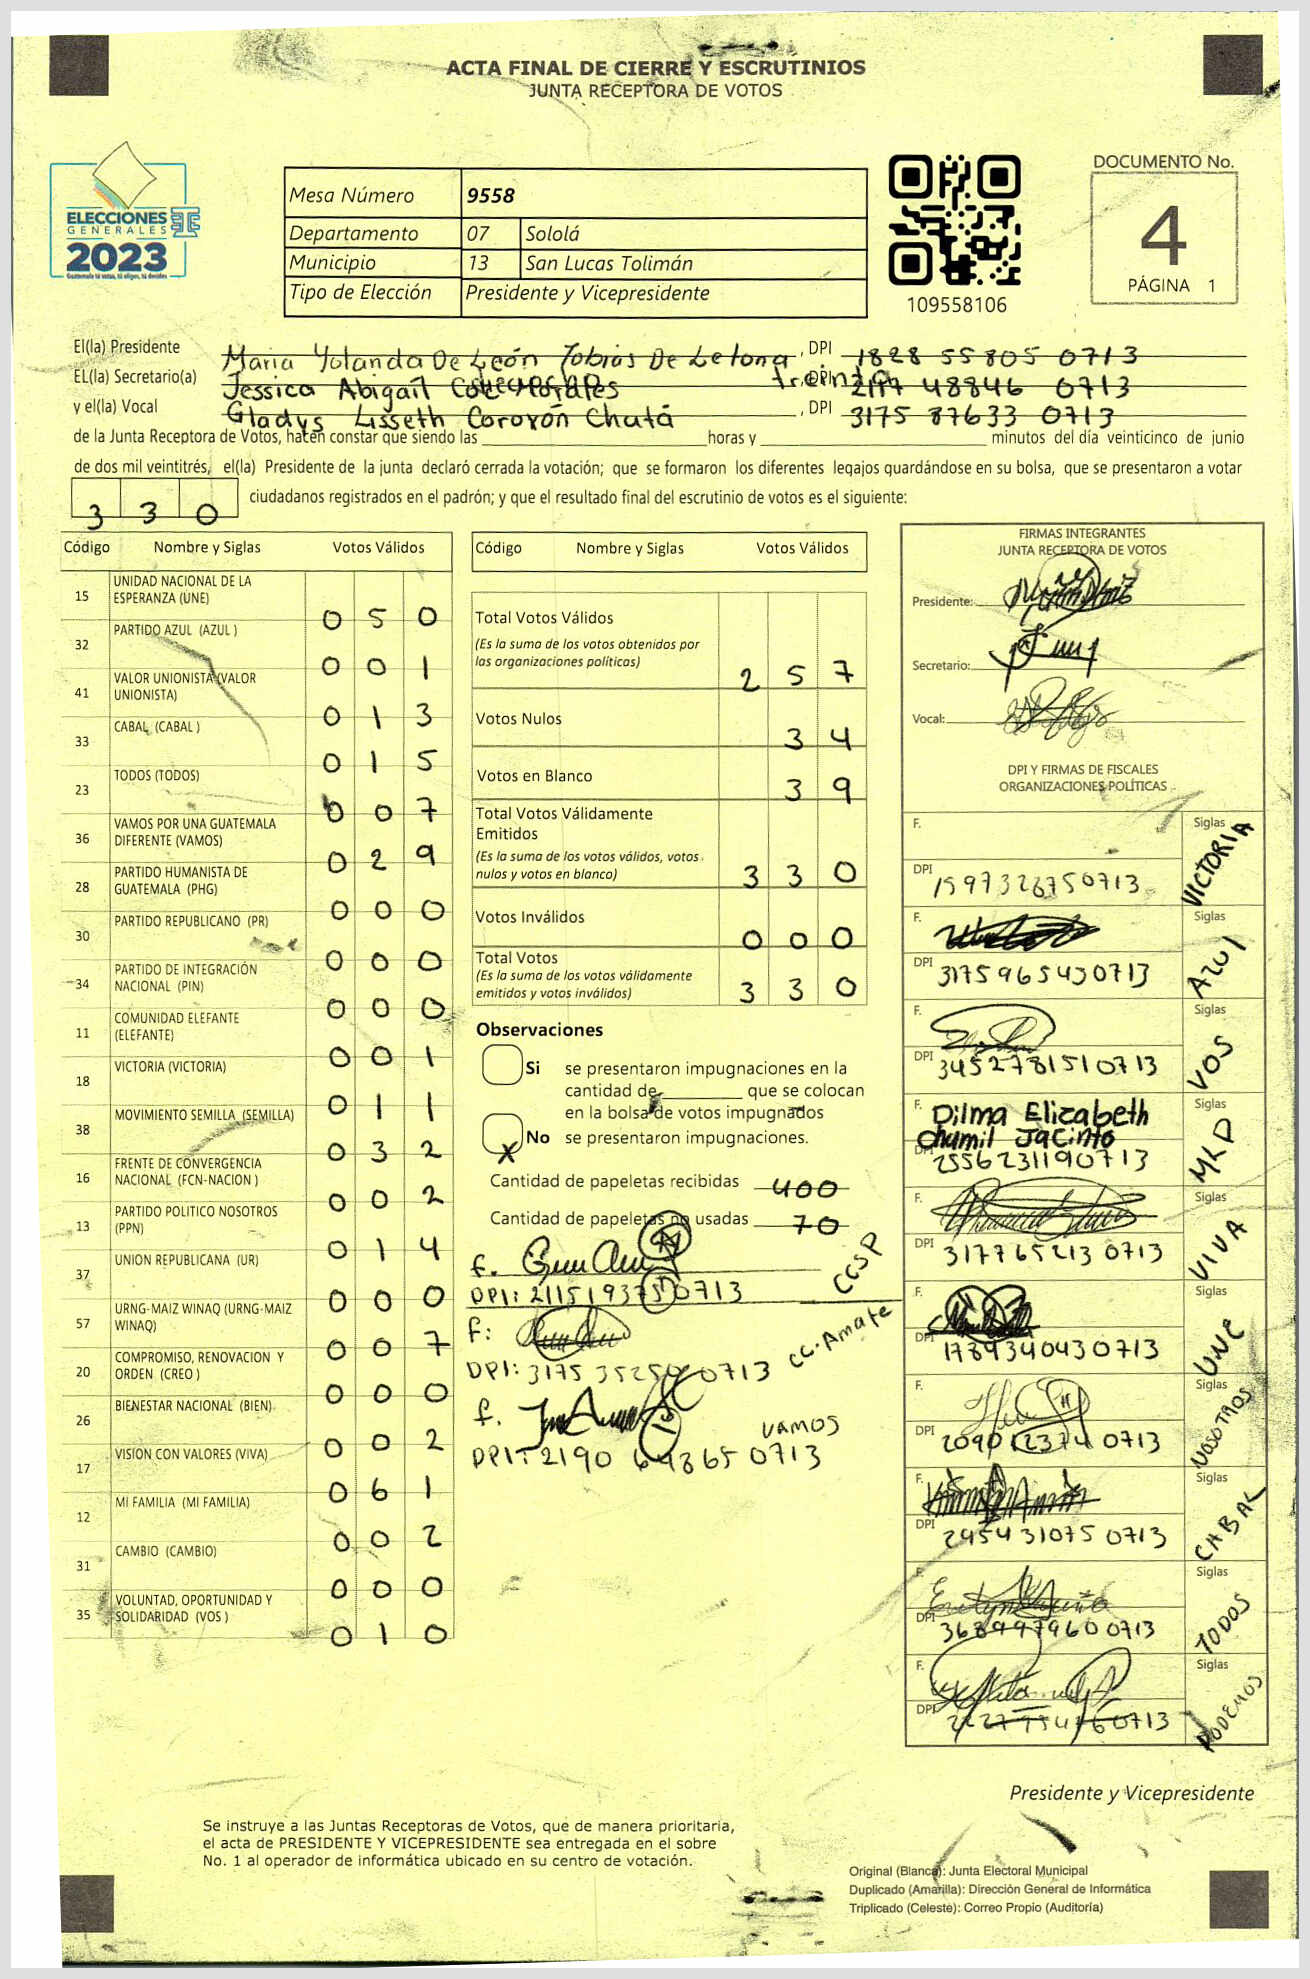 ACTA FINAL DE CIERRE Y ESCRUTINIOS
JUNTA RECEPTORA DE VOTOS
ELECCIONES
GENERALES
2023
Guatemala tú votas, tú eliges, tú decides
Mesa Número 9558
Departamento 07 Sololá
Municipio 13 San Lucas Tolimán
Tipo de Elección Presidente y Vicepresidente
109558106
DOCUMENTO No.
4
PÁGINA 1
El(la) Presidente Maria Yolanda De León Tobias De Letona, DPI 1828 55805 0713
EL(la) Secretario(a) Jessica Abigail Morales, DPI 48846 0713
y el(la) Vocal Gladys Lisseth Coroxón Chutá, DPI 3175 87633 0713
de la Junta Receptora de Votos, hacen constar que siendo las horas y minutos del día veinticinco de junio
de dos mil veintitrés, el(la) Presidente de la junta declaró cerrada la votación; que se formaron los diferentes legajos guardándose en su bolsa, que se presentaron a votar
330 ciudadanos registrados en el padrón; y que el resultado final del escrutinio de votos es el siguiente:
Código Nombre y Siglas Votos Válidos
15 UNIDAD NACIONAL DE LA ESPERANZA (UNE) 050
32 PARTIDO AZUL (AZUL ) 001
41 VALOR UNIONISTA (VALOR UNIONISTA) 013
33 CABAL (CABAL ) 015
23 TODOS (TODOS) 007
36 VAMOS POR UNA GUATEMALA DIFERENTE (VAMOS) 029
28 PARTIDO HUMANISTA DE GUATEMALA (PHG) 000
30 PARTIDO REPUBLICANO (PR) 000
34 PARTIDO DE INTEGRACIÓN NACIONAL (PIN) 000
11 COMUNIDAD ELEFANTE (ELEFANTE) 001
18 VICTORIA (VICTORIA) 011
38 MOVIMIENTO SEMILLA (SEMILLA) 032
16 FRENTE DE CONVERGENCIA NACIONAL (FCN-NACION ) 002
13 PARTIDO POLITICO NOSOTROS (PPN) 014
37 UNION REPUBLICANA (UR) 000
57 URNG-MAIZ WINAQ (URNG-MAIZ WINAQ) 007
20 COMPROMISO, RENOVACION Y ORDEN (CREO ) 000
26 BIENESTAR NACIONAL (BIEN) 002
17 VISION CON VALORES (VIVA) 061
12 MI FAMILIA (MI FAMILIA) 002
31 CAMBIO (CAMBIO) 000
35 VOLUNTAD, OPORTUNIDAD Y SOLIDARIDAD (VOS ) 010
Código Nombre y Siglas Votos Válidos
Total Votos Válidos
(Es la suma de los votos obtenidos por
las organizaciones políticas) 257
Votos Nulos 34
Votos en Blanco 39
Total Votos Válidamente
Emitidos
(Es la suma de los votos válidos, votos
nulos y votos en blanco) 330
Votos Inválidos 000
Total Votos
(Es la suma de los votos válidamente
emitidos y votos inválidos) 330
Observaciones
Si se presentaron impugnaciones en la
cantidad de que se colocan
en la bolsa de votos impugnados
X No se presentaron impugnaciones.
Cantidad de papeletas recibidas 400
Cantidad de papeletas no usadas 70
f.
DPI: 0713 CCSP
f:
DPI: 3175 0713 CC. Amate
f. vamos
DPI: 2190 0713
FIRMAS INTEGRANTES
JUNTA RECEPTORA DE VOTOS
Presidente:
Secretario:
Vocal:
DPI Y FIRMAS DE FISCALES
ORGANIZACIONES POLÍTICAS
F. Siglas VICTORIA
DPI 1597326750713
F. Siglas AZUL
DPI 3175965430713
F. Siglas VOS
DPI 3452781510713
F. Dilma Elizabeth Siglas MLP
Chumil Jacinto
DPI 2556231190713
F. Siglas VIVA
DPI 3177652130713
F. Siglas UNE
DPI 1789340430713
F. Siglas NOSOTROS
DPI 0713
F. Siglas CABAL
DPI 2954310750713
F. Siglas TODOS
DPI 3689979600713
F. Siglas PODEMOS
DPI 0713
Presidente y Vicepresidente
Se instruye a las Juntas Receptoras de Votos, que de manera prioritaria,
el acta de PRESIDENTE Y VICEPRESIDENTE sea entregada en el sobre
No. 1 al operador de informática ubicado en su centro de votación.
Original (Blanca): Junta Electoral Municipal
Duplicado (Amarilla): Dirección General de Informática
Triplicado (Celeste): Correo Propio (Auditoría)